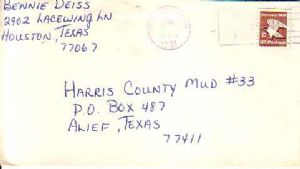 BENNIE DEISS
2902 LACEWING LN.
HOUSTON, TEXAS
77067
HARRIS COUNTY MUD #33
P.O. BOX 487
ALIEF, TEXAS
77411